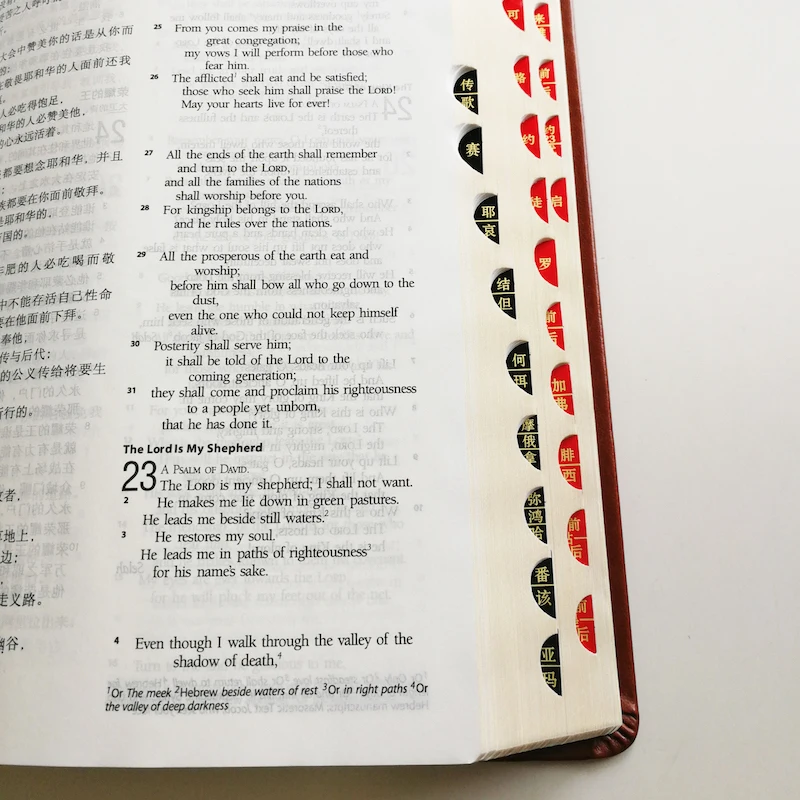 苦之人呼
大会中赞美你的话是从你而
在敬畏耶和华的人面前还我
人必吃得饱足,
和华的人必赞美他,
的心永远活着。
都要想念耶和华,并且
族都要在你面前敬拜。
是耶和华的,
国的。
肥的人必吃喝而敬
中不能存活自己性命
要在他面前下拜。
奉他,
传与后代;
的公义传给将要生
所行的。
草地上,
边;
走义路。
幽谷,
25 From you comes my praise in the
great congregation;
my vows I will perform before those who
fear him.
26 The afflicted1 shall eat and be satisfied;
those who seek him shall praise the LORD!
May your hearts live for ever!
27 All the ends of the earth shall remember
and turn to the LORD,
and all the families of the nations
shall worship before you.
28 For kingship belongs to the LORD,
and he rules over the nations.
29 All the prosperous of the earth eat and
worship;
before him shall bow all who go down to the
dust,
even the one who could not keep himself
alive.
30 Posterity shall serve him;
it shall be told of the Lord to the
coming generation;
31 they shall come and proclaim his righteousness
to a people yet unborn,
that he has done it.
The Lord Is My Shepherd
23 A PSALM OF DAVID.
The LORD is my shepherd; I shall not want.
2 He makes me lie down in green pastures.
He leads me beside still waters.2
3 He restores my soul.
He leads me in paths of righteousness3
for his name's sake.
4 Even though I walk through the valley of the
shadow of death,4
1Or The meek 2Hebrew beside waters of rest 3Or in right paths 4Or
the valley of deep darkness
传
歌
赛
耶
哀
结
但
何
珥
摩
俄
拿
弥
鸿
哈
番
该
亚
玛
可
路
约
徒
罗
前
后
加
弗
腓
西
前
后
前
后
来
前
后
约
启